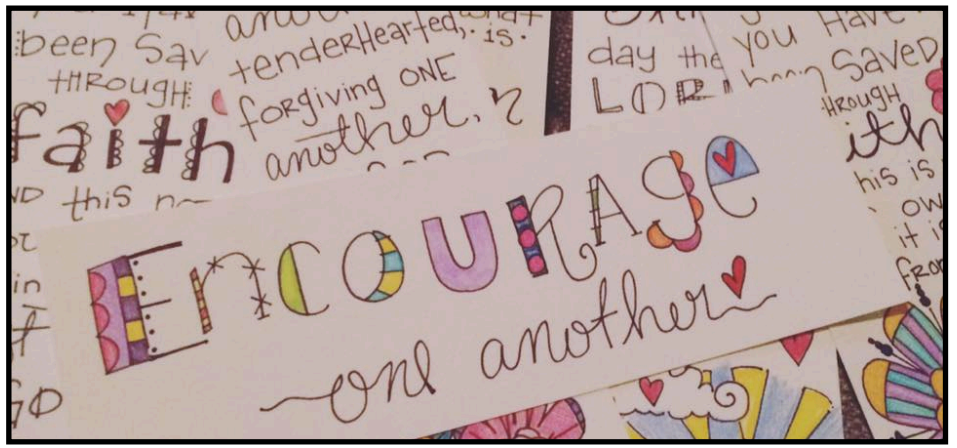 been Sav
THROUGH:
faith
this
tenderHearted,
forgiving ONE
another,
is.
day the
LORD
you Have
been Saved
THROUGH
ith
his is
ow
it is
from
in
GO
EncOURAge
one another